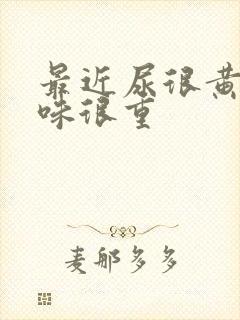 最近尿很黄
味很重
麦郍多多